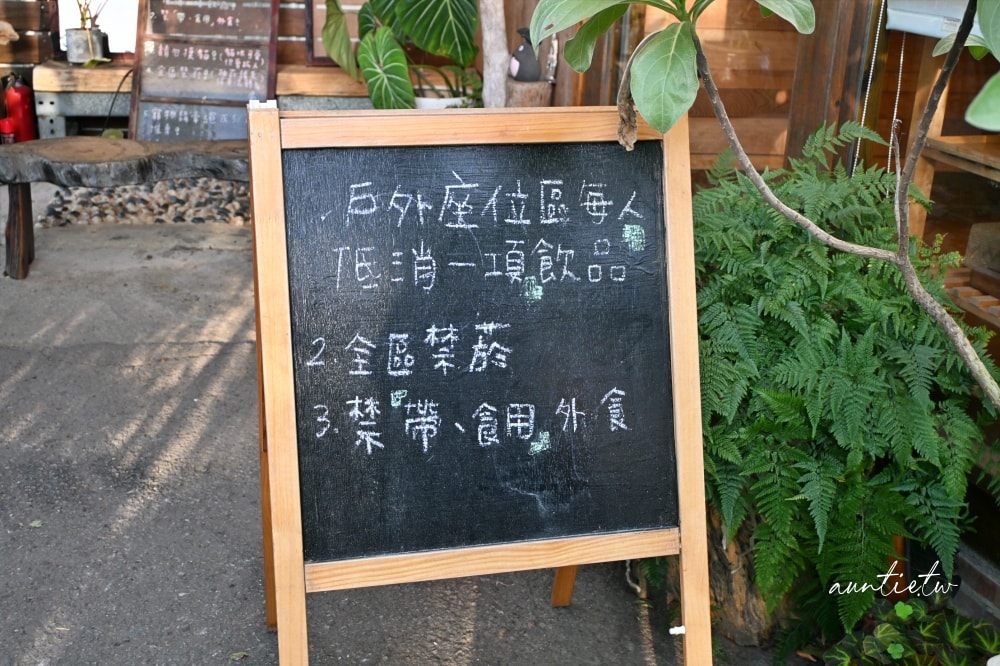 1. 戶外座位區每人
低消一項飲品
2. 全區禁菸
3. 禁帶、食用外食
auntie.tw